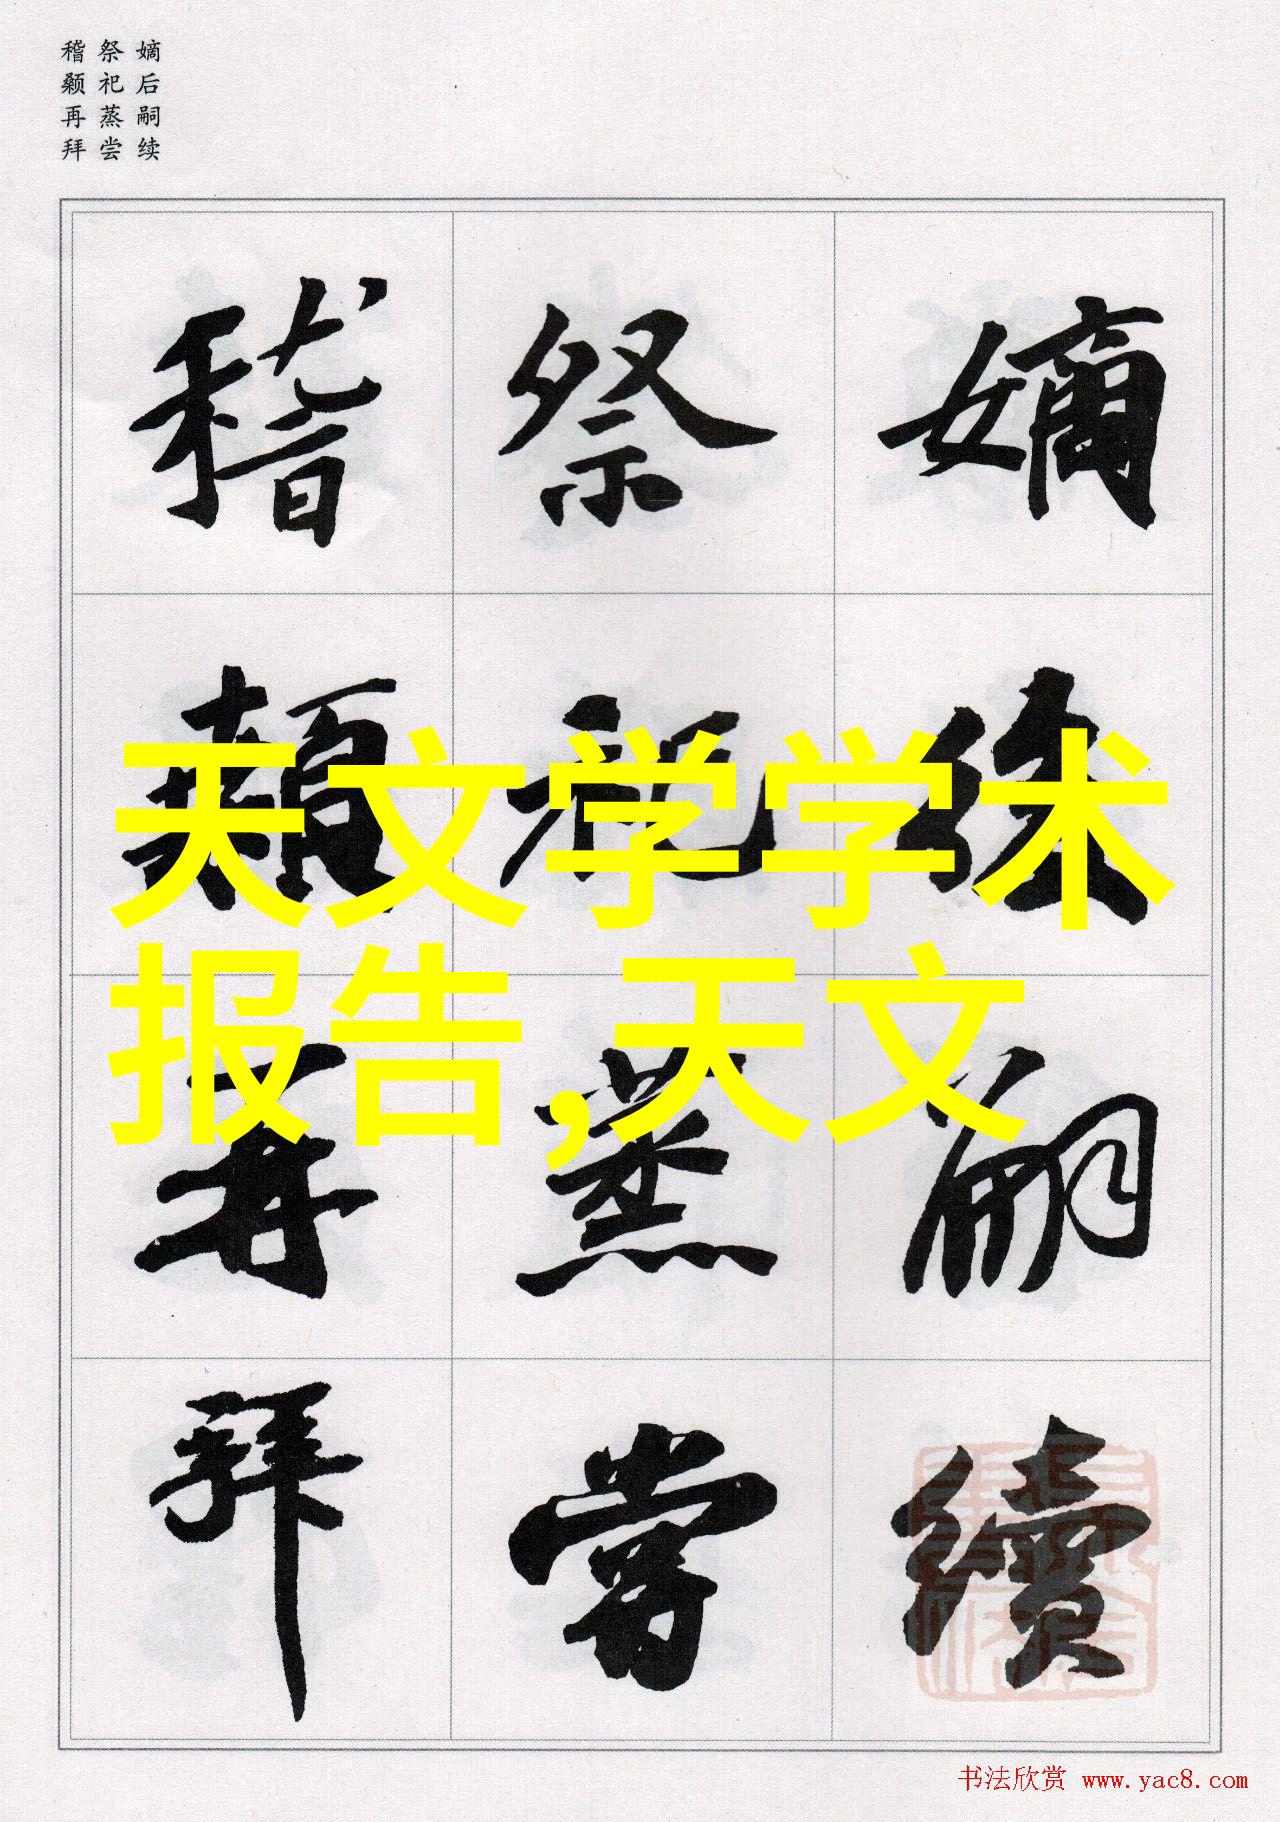 嫡后嗣续
祭祀蒸尝
稽颡再拜
嫡後嗣續
祭祀蒸嘗
稽顙再拜
天文学学术
报告,天文
书法欣赏 www.yac8.com